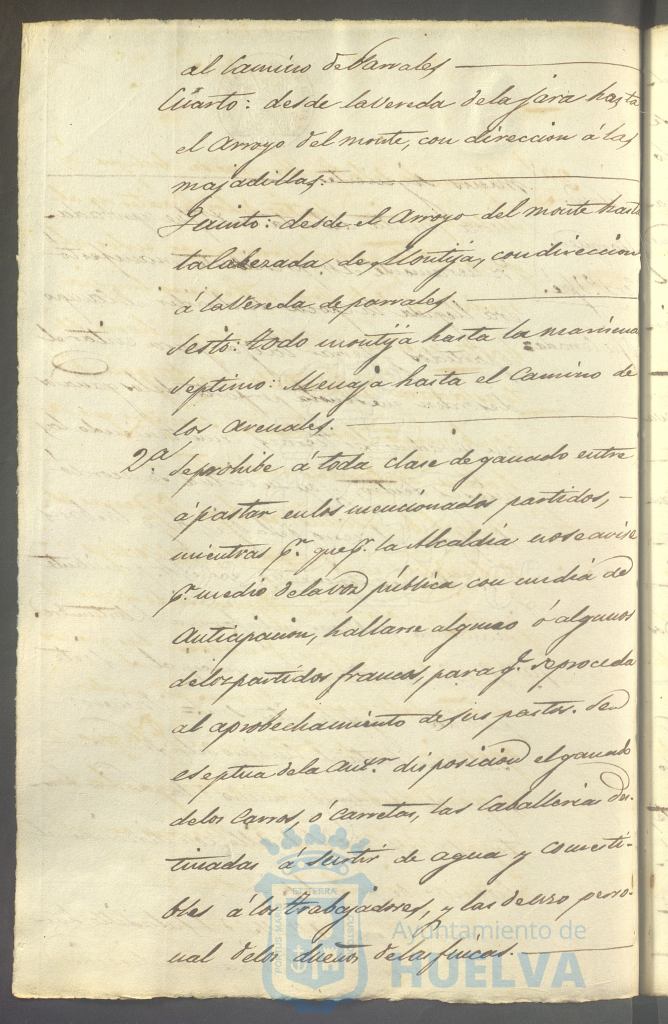 al Camino de Parrales
Cuarto: desde la Vereda de la Jara hasta
el Arroyo del monte, con direccion á las
majadillas.
Quinto: desde el Arroyo del monte hasta
la Cabezada de Montija, con direccion
á la Vereda de parrales
Sesto: todo montija hasta la marisma
Septimo: Menaja hasta el Camino de
los arenales.
2ª Se prohibe á toda clase de ganado entre
á pastar en los mencionados partidos,
mientras pr. que pr. la Alcaldia no se avise
pr. medio de la voz pública con un dia de
anticipacion, hallarse alguno ó algunos
de los partidos francos, para qe. se proceda
al aprobechamiento de sus pastos. Se
eseptua de la antr. disposicion el ganado
de los Carros, ó carretas, las Caballerias des-
tinadas á surtir de agua y comesti-
bles á los trabajadores, y las de uso perso-
nal de los dueños de las fincas.
Ayuntamiento de
HUELVA